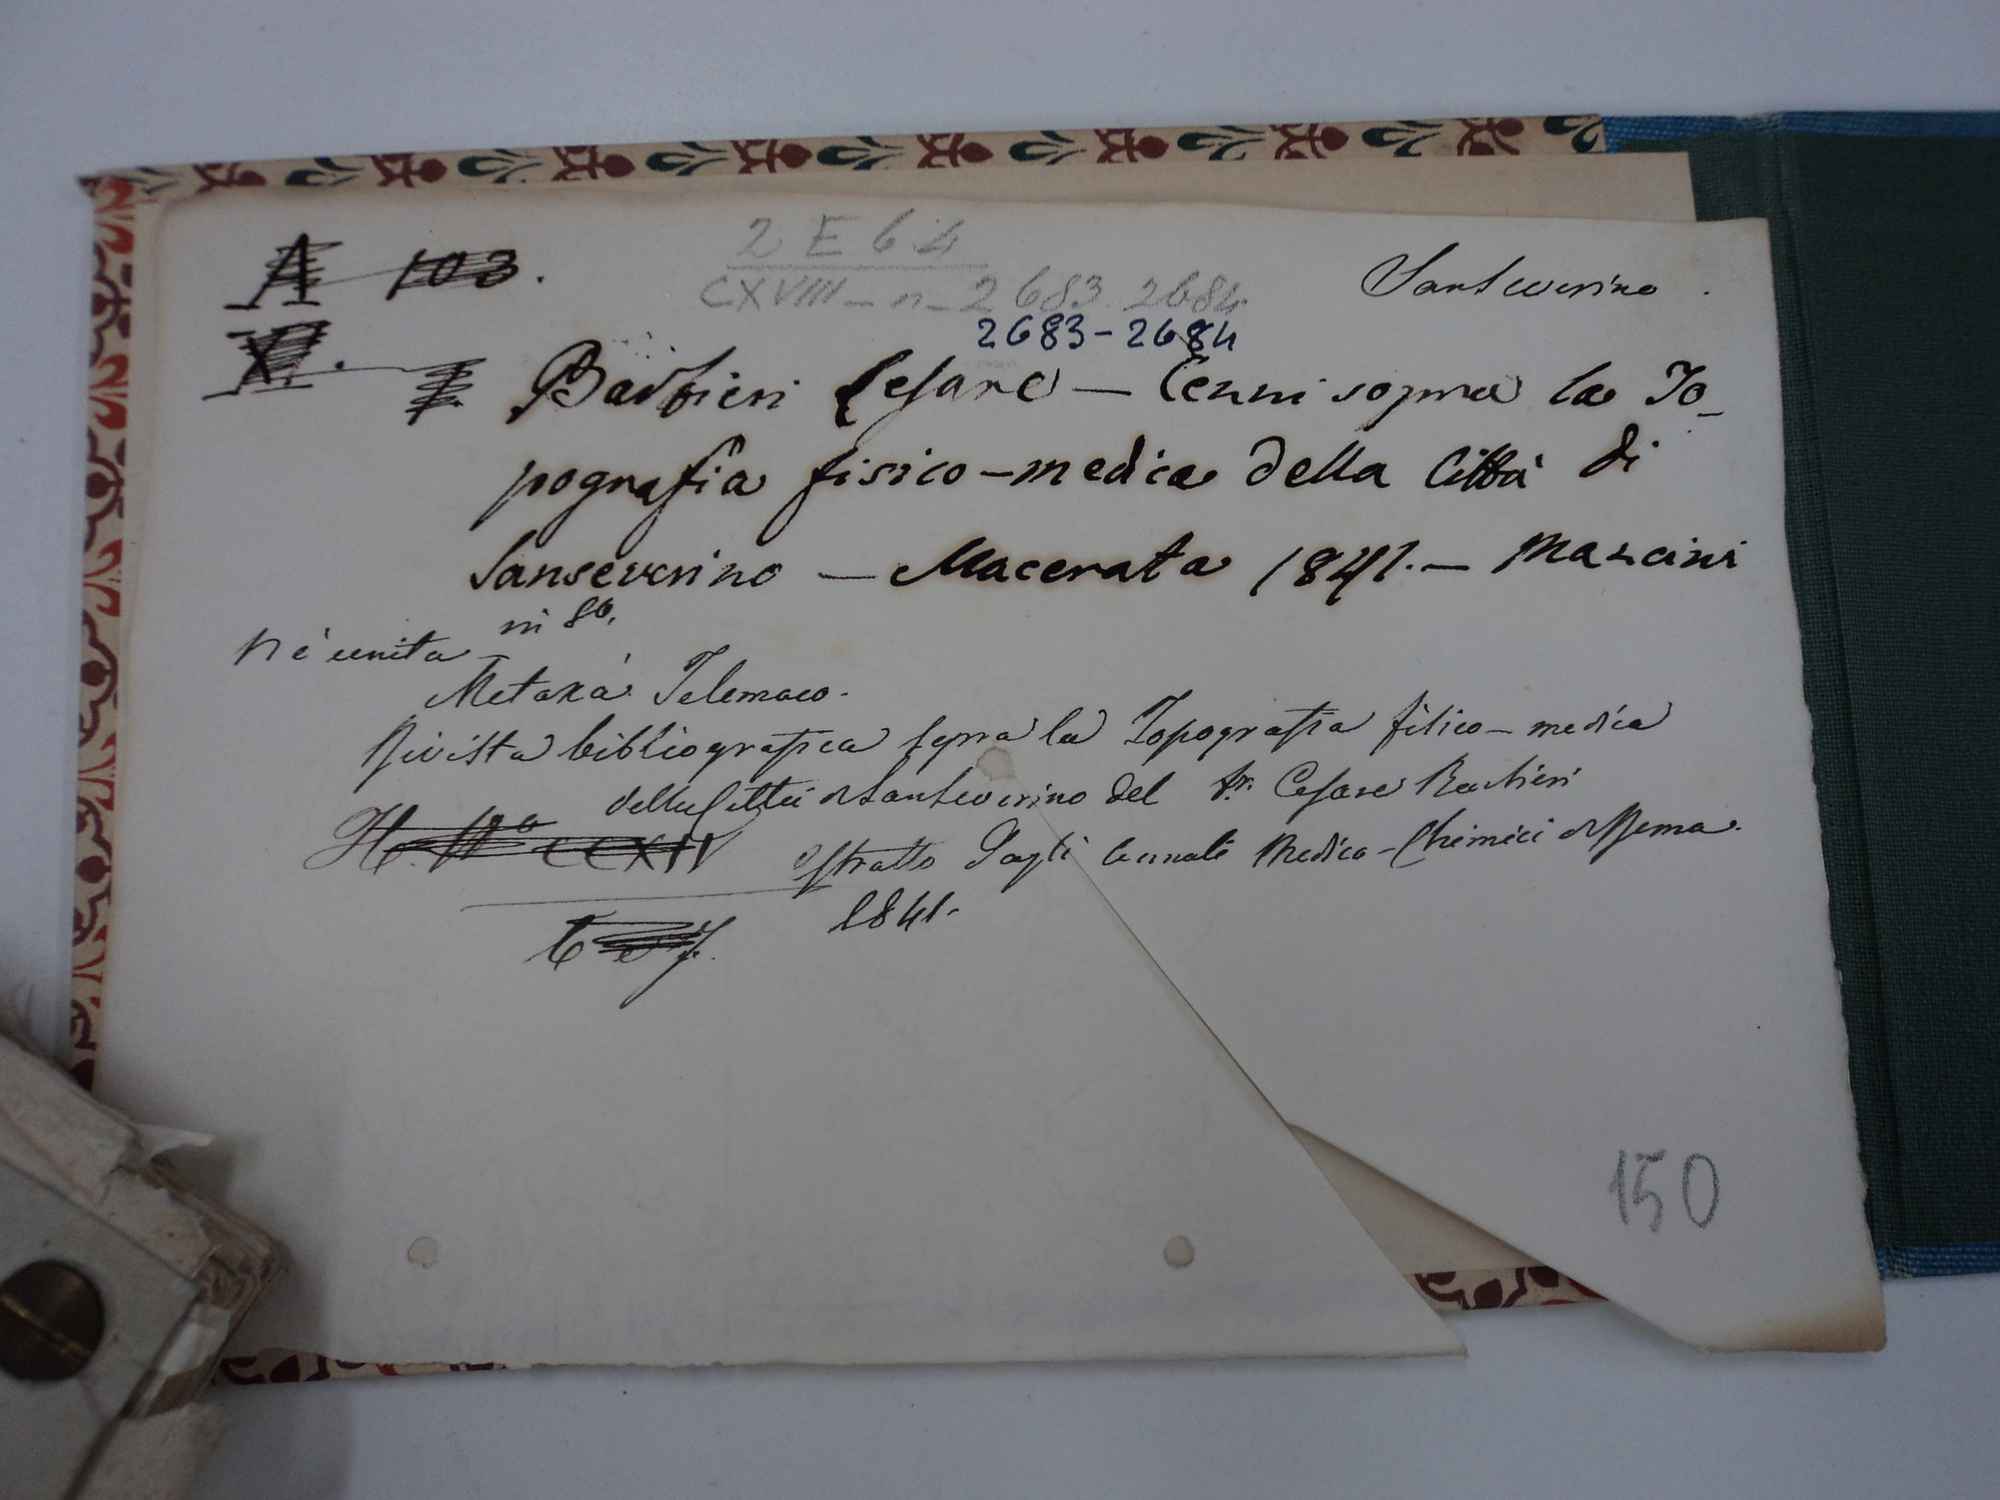 A 103.
X.
2 E 64
CXVIII - n - 2683 2684
2683-2684
Sanseverino.
Barbieri Cesare — Cenni sopra la To-
pografia fisico-medica della Città di
Sanseverino — Macerata 1841. — Mancini
in 8º.
Vi è unita
Metaxà Telemaco.
Rivista bibliografica sopra la Topografia fisico-medica
della Città di Sanseverino del Sr. Cesare Barbieri
CCXIV
estratto Dagli Annali Medico-Chimici di Roma.
1841.
150